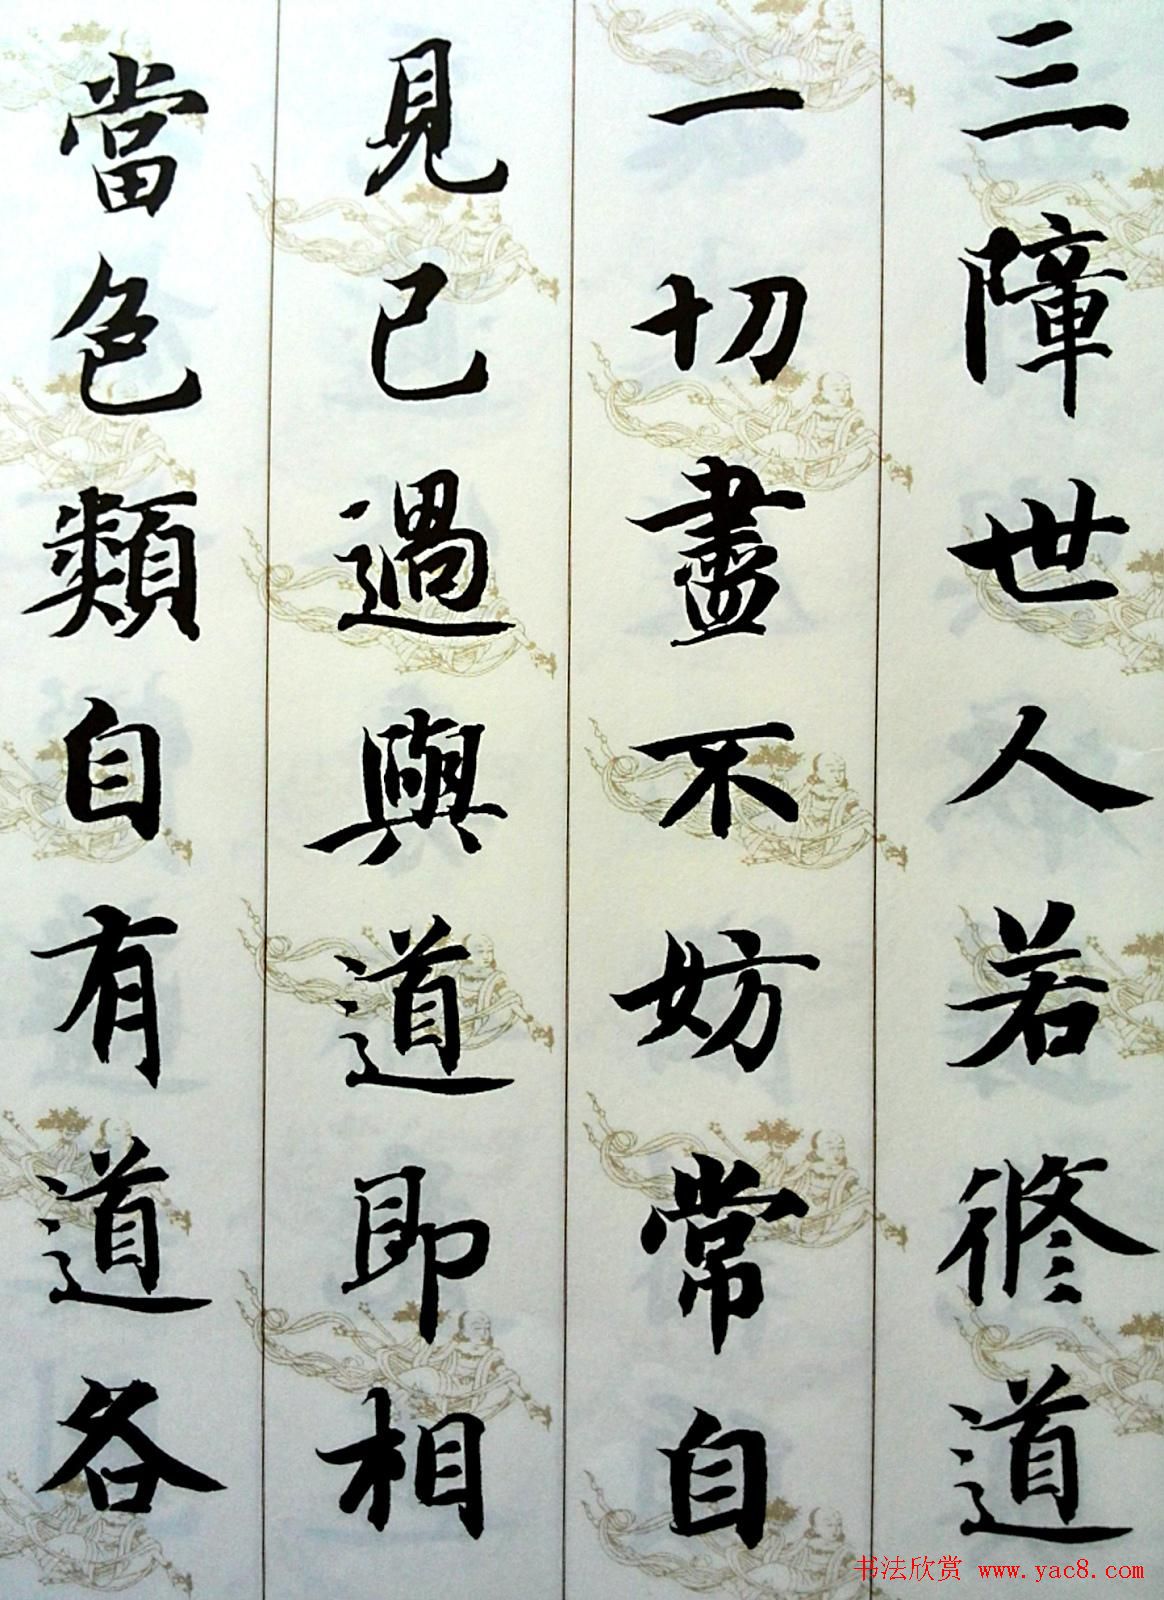 三障世人若修道
一切盡不妨常自
見已過與道即相
當色類自有道各
书法欣赏 www.yac8.com